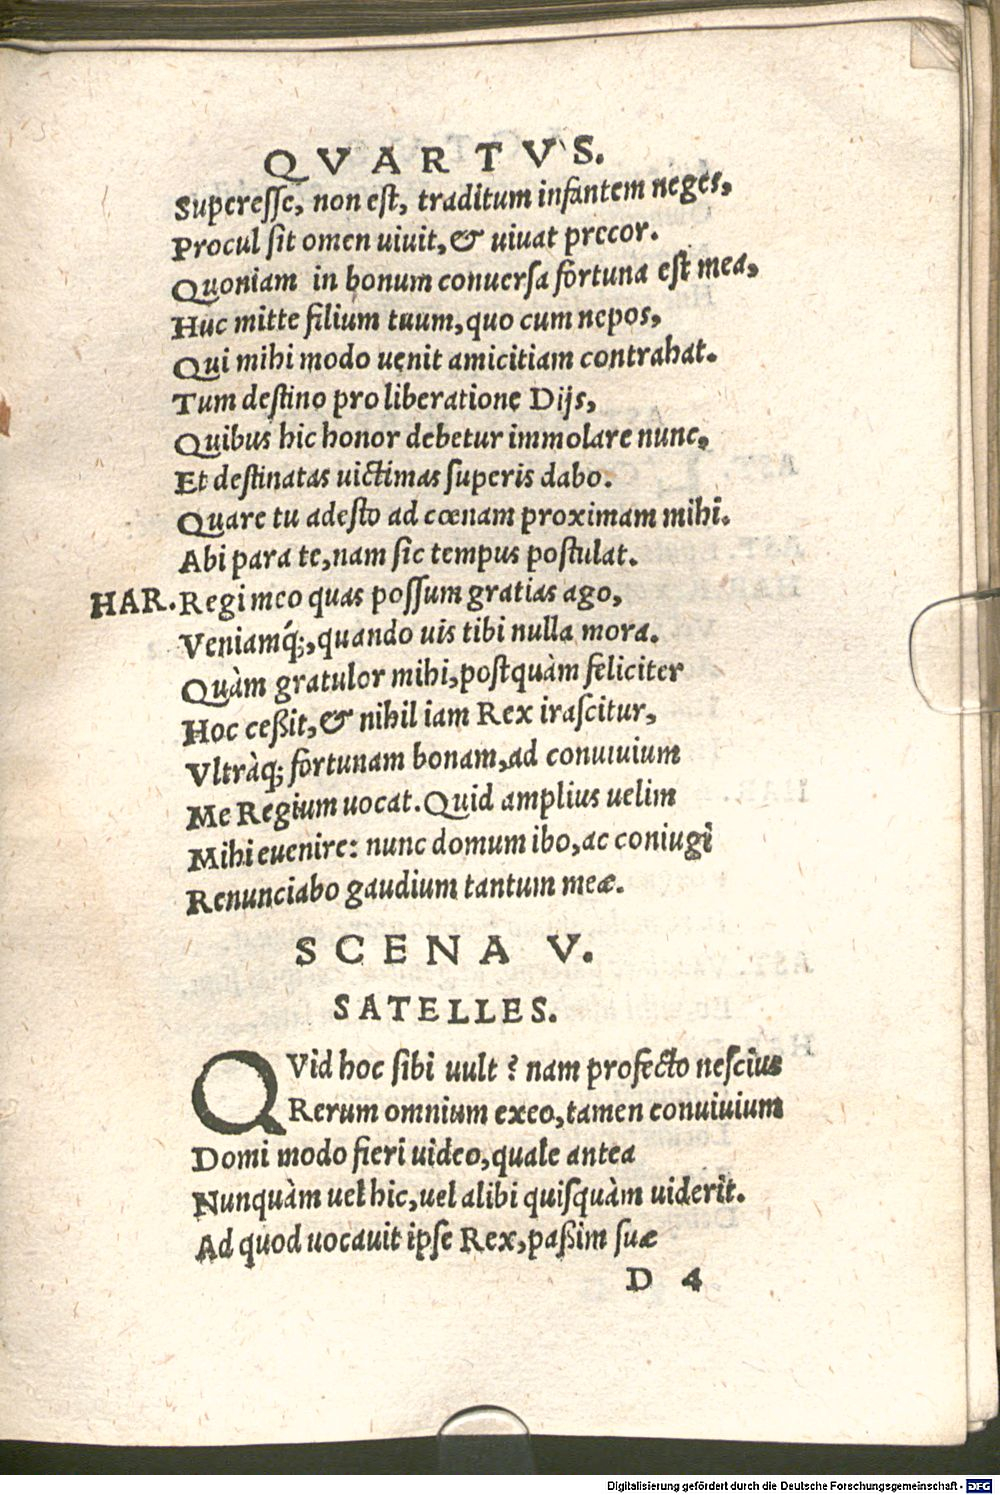 QVARTVS.
Superesse, non est, traditum infantem neges,
Procul sit omen uiuit, & uiuat precor.
Quoniam in bonum conuersa fortuna est mea,
Huc mitte filium tuum, quo cum nepos,
Qui mihi modo uenit amicitiam contrahat.
Tum destino pro liberatione Dijs,
Quibus hic honor debetur immolare nunc,
Et destinatas uictimas superis dabo.
Quare tu adesto ad cœnam proximam mihi.
Abi para te, nam sic tempus postulat.
HAR. Regi meo quas possum gratias ago,
Veniamq́;, quando uis tibi nulla mora.
Quàm gratulor mihi, postquàm feliciter
Hoc ceßit, & nihil iam Rex irascitur,
Vltràq; fortunam bonam, ad conuiuium
Me Regium uocat. Quid amplius uelim
Mihi euenire: nunc domum ibo, ac coniugi
Renunciabo gaudium tantum meæ.
SCENA V.
SATELLES.
QVid hoc sibi uult? nam profecto nescius
Rerum omnium exeo, tamen conuiuium
Domi modo fieri uideo, quale antea
Nunquàm uel hic, uel alibi quisquàm uiderit.
Ad quod uocauit ipse Rex, paßim suæ
D 4
Digitalisierung gefördert durch die Deutsche Forschungsgemeinschaft - DFG